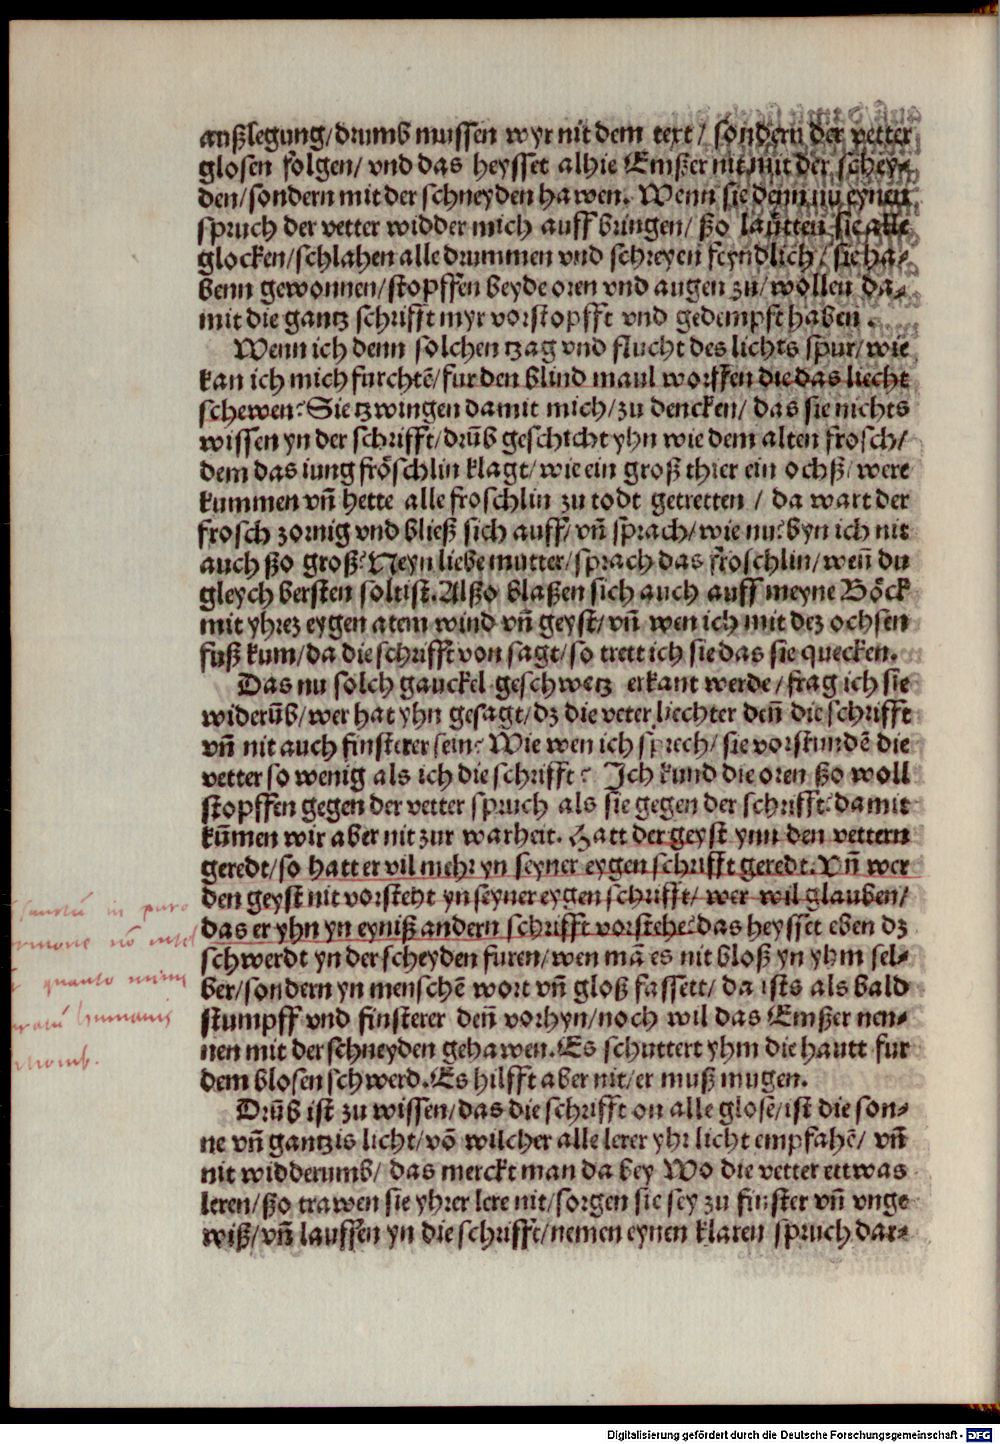 außlegung/drumb mussen wyr nit dem text/ sondern der vetter
glosen folgen/ vnd das heysset alhie Emßer nit mit der schey⸗
den/sondern mit der schneyden hawen. Wenn sie denn nu eynen
spruch der vetter widder mich auff bringen/ ßo lautten sie alle
glocken/schlahen alle drummen vnd schreyen feyndlich/ sie ha⸗
benn gewonnen/stopffen beyde oren vnd augen zu/ wollen da⸗
mit die gantz schrifft myr vorstopfft vnd gedempft haben.
Wenn ich denn solchen tzag vnd flucht des lichts spur/ wie
kan ich mich furchtē/ fur den blind maul worffen die das liecht
schewen? Sie tzwingen damit mich/ zu dencken/ das sie nichts
wissen yn der schrifft/ drūb geschicht yhn wie dem alten frosch/
dem das iung fröschlin klagt/ wie ein groß thier ein ochß/ were
kummen vn̄ hette alle froschlin zu todt getretten / da wart der
frosch zornig vnd bließ sich auff/ vn̄ sprach/ wie nu? byn ich nit
auch ßo groß? Neyn liebe mutter/ sprach das froschlin/ wen̄ du
gleych bersten soltist. Alßo blaßen sich auch auff meyne Böck
mit yhrez eygen atem wind vn̄ geyst/ vn̄ wen ich mit dez ochsen
fuß kum/ da die schrifft von sagt/ so trett ich sie das sie quecken.
Das nu solch gauckel geschwetz erkant werde/ frag ich sie
widerūb/ wer hat yhn gesagt/ dz die veter liechter den̄ die schrifft
vn̄ nit auch finsterer sein? Wie wen ich sprech/ sie vorstundē die
vetter so wenig als ich die schrifft? Ich kund die oren ßo woll
stopffen gegen der vetter spruch als sie gegen der schrifft. damit
kūmen wir aber nit zur warheit. Hatt der geyst ynn den vettern
geredt/ so hatt er vil mehr yn seyner eygen schrifft geredt. Vn̄ wer
den geyst nit vorsteht yn seyner eygen schrifft/ wer wil glauben/
das er yhn yn eyniß andern schrifft vorstehe? das heysset eben dz
schwerdt yn der scheyden furen/ wen mā es nit bloß yn yhm sel⸗
ber/ sondern yn menschē wort vn̄ gloß fassett/ da ists als bald
stumpff vnd finsterer den̄ vorhyn/ noch wil das Emßer nen⸗
nen mit der schneyden gehawen. Es schuttert yhm die hautt fur
dem blosen schwerd. Es hilfft aber nit/ er muß mugen.
Drūb ist zu wissen/ das die schrifft on alle glosē/ ist die son⸗
ne vn̄ gantzis licht/ vō wilcher alle lerer yhr licht empfahē/ vn̄
nit widderumb/ das merckt man da bey Wo die vetter ettwas
leren/ ßo trawen sie yhrer lere nit/ sorgen sie sey zu finster vn̄ vnge
wiß/ vn̄ lauffen yn die schrifft/ nemen eynen klaren spruch dar⸗
in puro
quanto
humanis
Digitalisierung gefördert durch die Deutsche Forschungsgemeinschaft - DFG